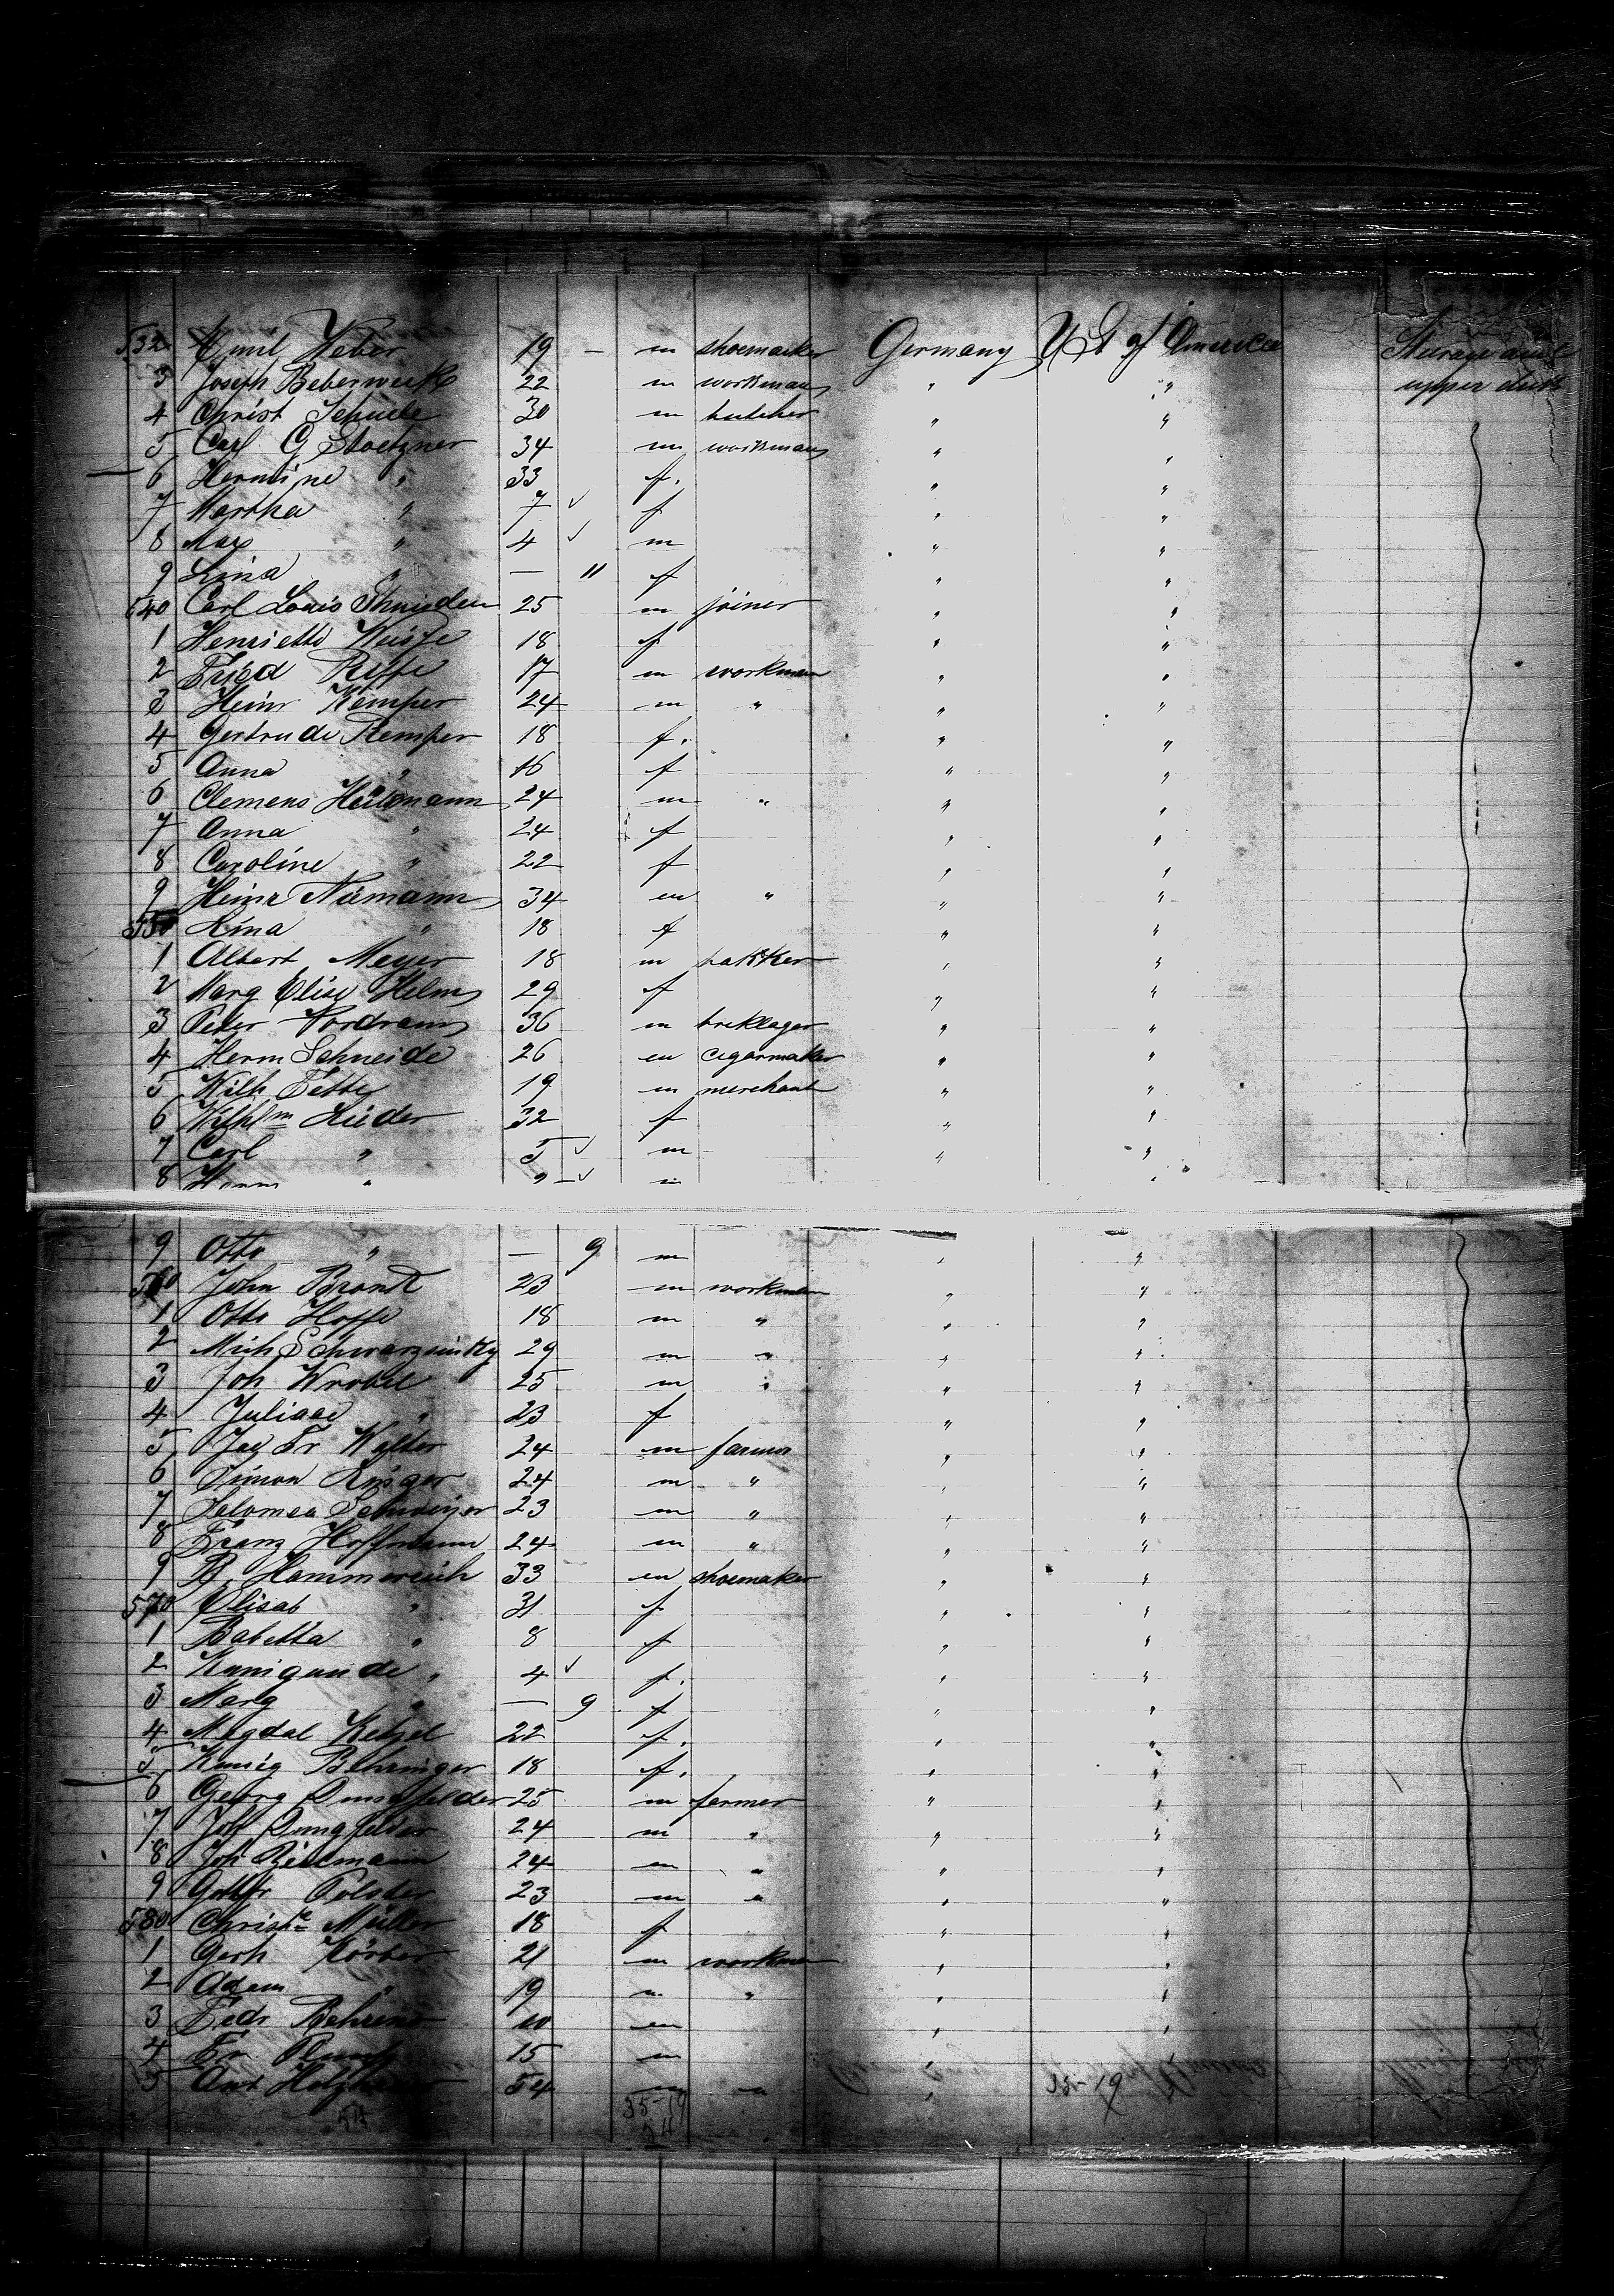 532 Emil Weber 19 — m shoemaker Germany U St of America Steerage and
3 Joseph 22 m workman " " upper deck
4 Christ Schuele 30 m butcher " "
5 Carl G Stoetzner 34 m workman " "
6 Hermine " 33 f. " "
7 Martha " 7 ✓ f " "
8 Max " 4 ✓ m " "
9 Lina " — 11 f " "
540 Carl Louis 25 m joiner " "
1 Henriette 18 f " "
2 Fried 17 m workman " "
3 Heinr Kemper 24 m " " "
4 Gertrude Kemper 18 f. " "
5 Anna " 16 f " "
6 Clemens 24 m " " "
7 Anna " 24 f " "
8 Caroline " 22 f " "
9 Heinr Niemann 34 m " " "
550 Lina " 18 f " "
1 Albert Meyer 18 m " "
2 Marg Elise Helms 29 f " "
3 Peter 36 m breklager " "
4 Herm Schneide 26 m cigarmaker " "
5 Wilh Tette 19 m merchant " "
6 Wilhlm Lueder 32 f " "
7 Carl " 5 ✓ m " "
8 Herm " ✓ m "
9 Otto " — 9 m " "
560 John Brandt 23 m workman " "
1 Otto Hoppe 18 m " " "
2 Mich 29 m " " "
3 Joh Wrobel 25 m " " "
4 " 23 f " "
5 Fr Walter 24 m farmer " "
6 Simon 24 m " " "
7 Salomea 23 m " " "
8 Franz Hoffmann 24 m " " "
9 B. Hammereich 33 m shoemaker " "
570 Elisab " 31 f " "
1 Babetta " 8 f " "
2 Kunigunde " 4 ✓ f. " "
3 Marg " — 9 f " "
4 Magdal Ketzel 22 f. " "
5 Kunig Behringer 18 f. " "
6 Georg 25 m farmer " "
7 Joh 24 m " " "
8 Joh 24 m " " "
9 Gottfr Polster 23 m " " "
580 Christe Müller 18 f " "
1 Gerh Körber 21 m workman " "
2 Adam " 19 m " " "
3 Fedr Behrens 10 m " "
4 Fr. 15 m "
5 Ant 54 m " "
35-19